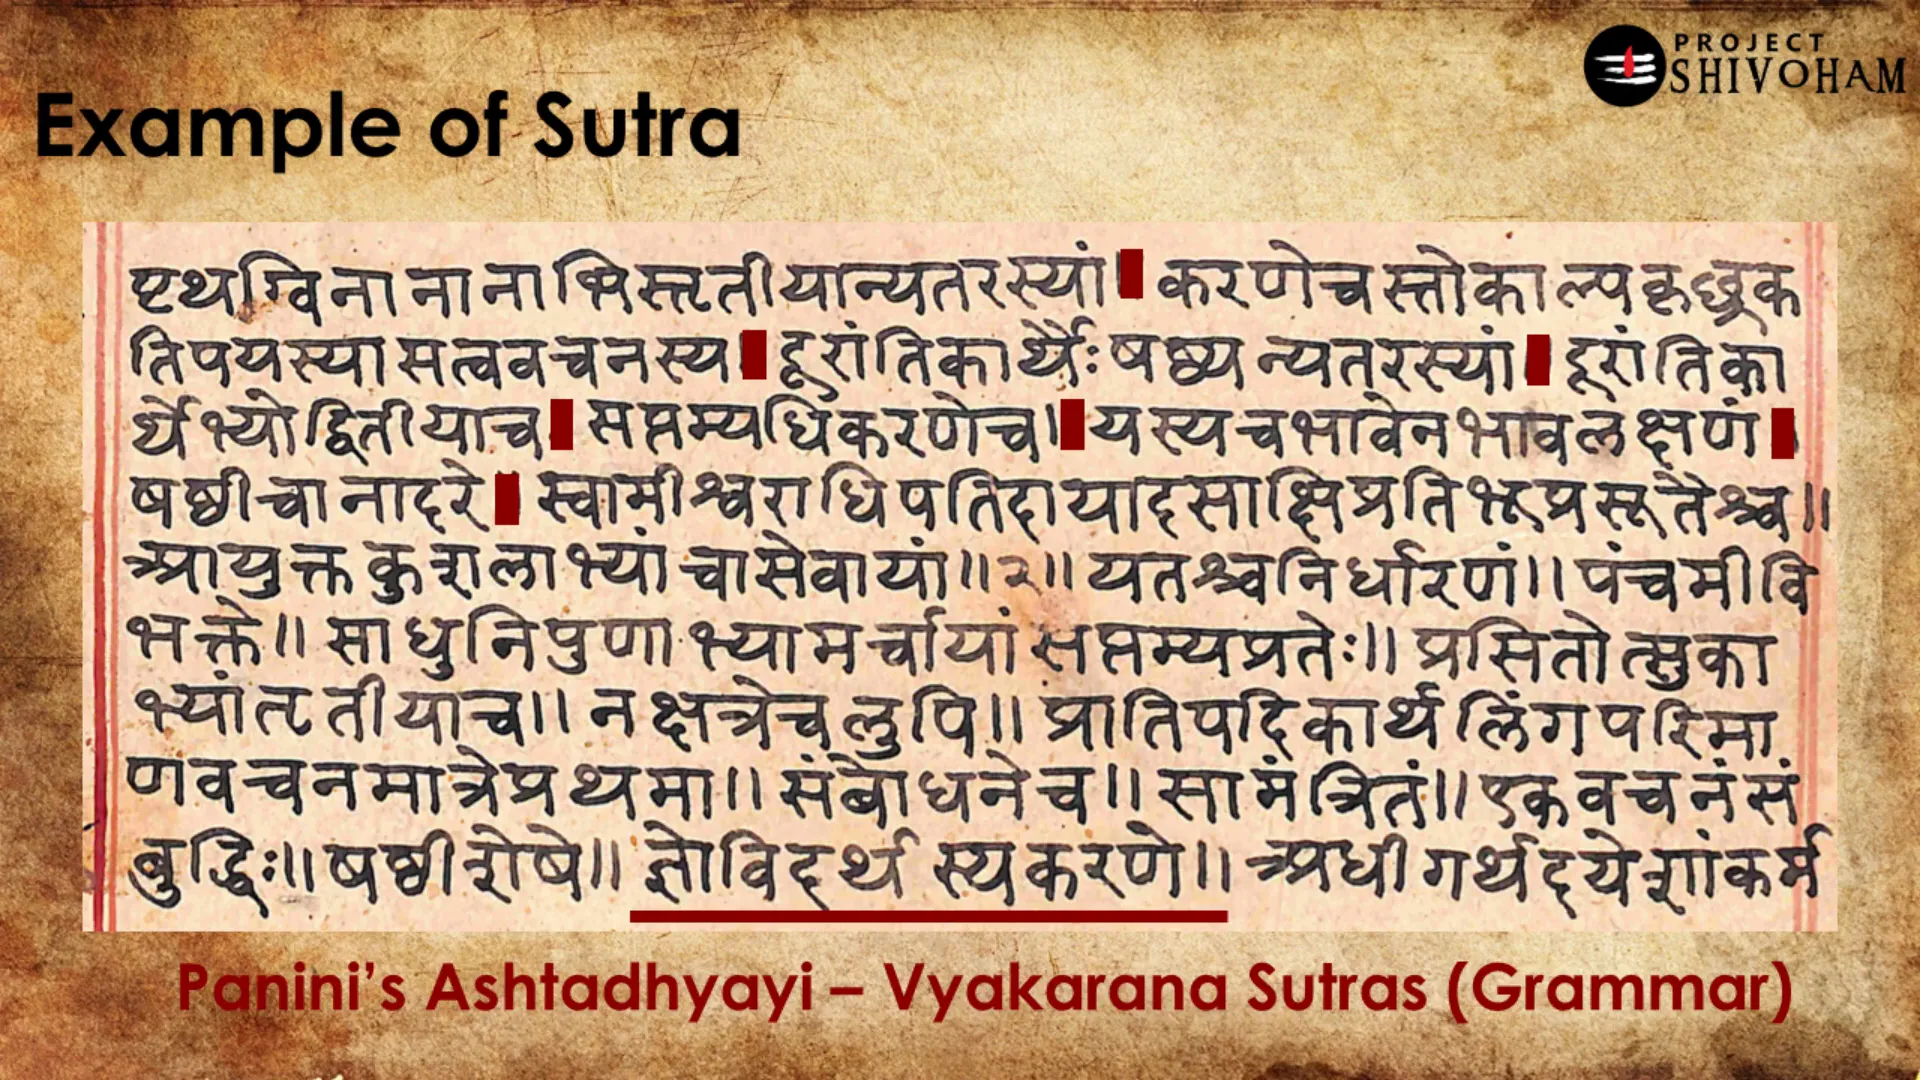 PROJECT
SHIVOHAM
Example of Sutra
पृथग्विनानानाभिस्तृतीयान्यतरस्यां करणेचस्तोकाल्पकृछ्रक
तिपयस्यासत्ववचनस्य दूरांतिकार्थैः षष्ठ्यन्यतरस्यां दूरांतिका
र्थेभ्योद्वितीयाच सप्तम्यधिकरणेच। यस्यचभावेनभावलक्षणं
षष्ठीचानादरे स्वामीश्वराधिपतिदायादसाक्षिप्रतिभूप्रसूतैश्च॥
आयुक्तकुशलाभ्यांचासेवायां॥२॥ यतश्चनिर्धारणं॥ पंचमीवि
भक्ते॥ साधुनिपुणाभ्यामर्चायांसप्तम्यप्रतेः॥ प्रसितोत्सुका
भ्यांतृतीयाच॥ नक्षत्रेचलुपि॥ प्रातिपदिकार्थलिंगपरिमा
णवचनमात्रेप्रथमा॥ संबोधनेच॥ सामंत्रितं॥ एकवचनंसं
बुद्धिः॥ षष्ठीशेषे॥ ज्ञोविदर्थस्यकरणे॥ अधीगर्थदयेशांकर्म
Panini’s Ashtadhyayi – Vyakarana Sutras (Grammar)